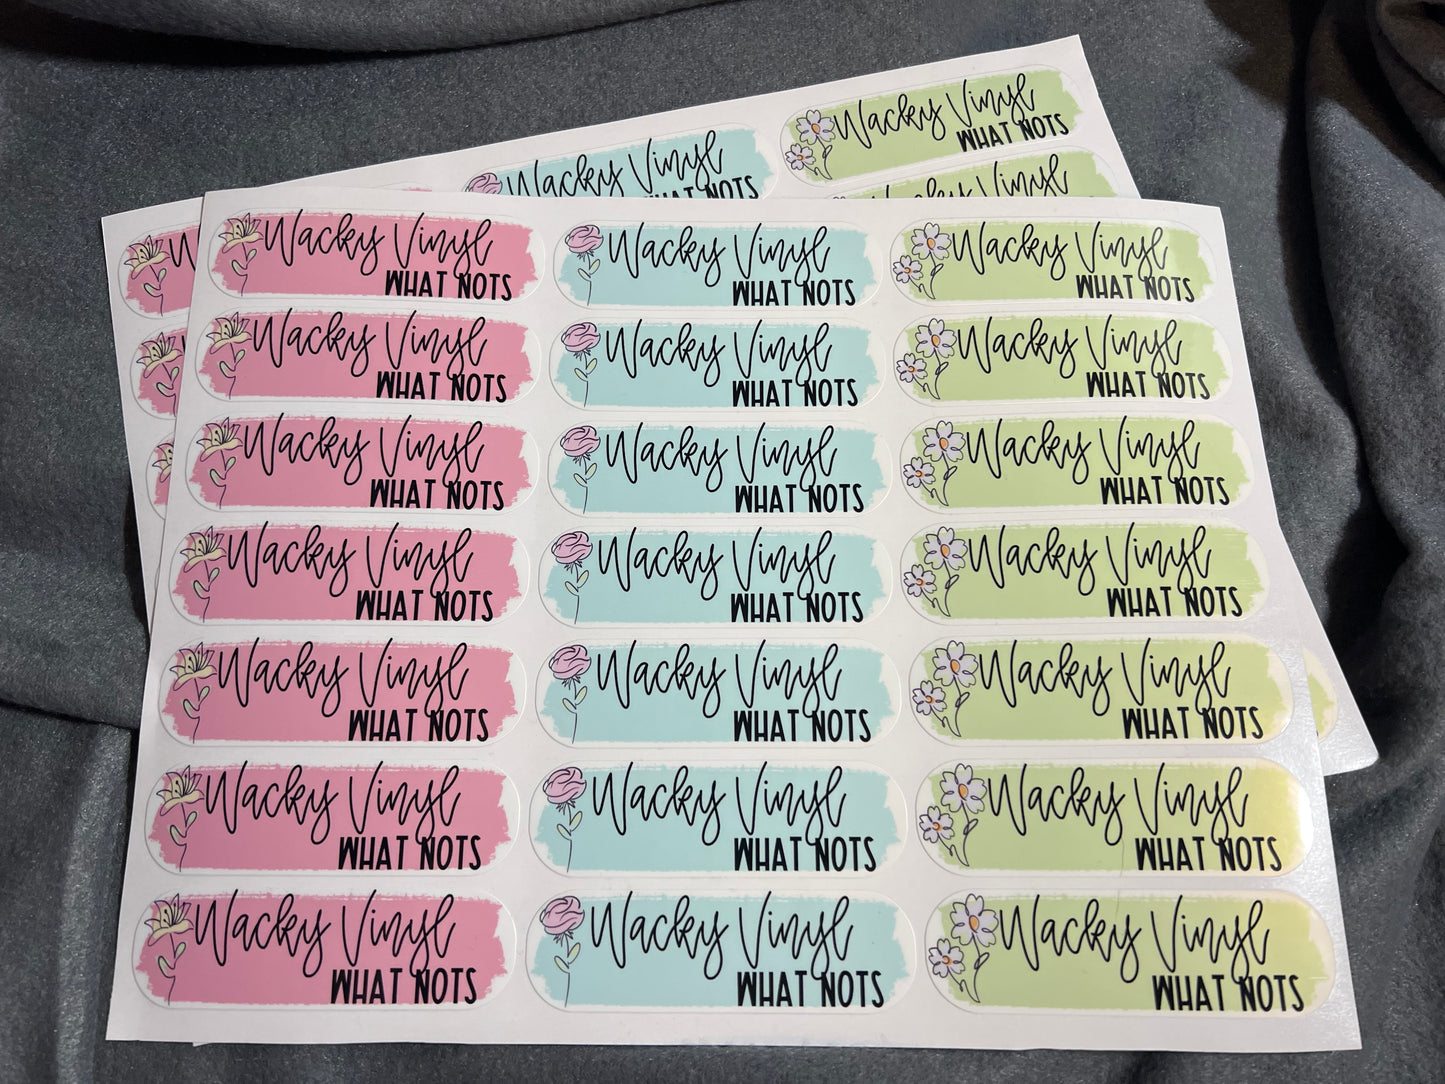 Wacky Vinyl
WHAT NOTS
Wacky Vinyl
WHAT NOTS
Wacky Vinyl
Wacky Vinyl
WHAT NOTS
Wacky Vinyl
WHAT NOTS
Wacky Vinyl
WHAT NOTS
Wacky Vinyl
WHAT NOTS
Wacky Vinyl
WHAT NOTS
Wacky Vinyl
WHAT NOTS
Wacky Vinyl
WHAT NOTS
Wacky Vinyl
WHAT NOTS
Wacky Vinyl
WHAT NOTS
Wacky Vinyl
WHAT NOTS
Wacky Vinyl
WHAT NOTS
Wacky Vinyl
WHAT NOTS
Wacky Vinyl
WHAT NOTS
Wacky Vinyl
WHAT NOTS
Wacky Vinyl
WHAT NOTS
Wacky Vinyl
WHAT NOTS
Wacky Vinyl
WHAT NOTS
Wacky Vinyl
WHAT NOTS
Wacky Vinyl
WHAT NOTS
Wacky Vinyl
WHAT NOTS
Wacky Vinyl
WHAT NOTS